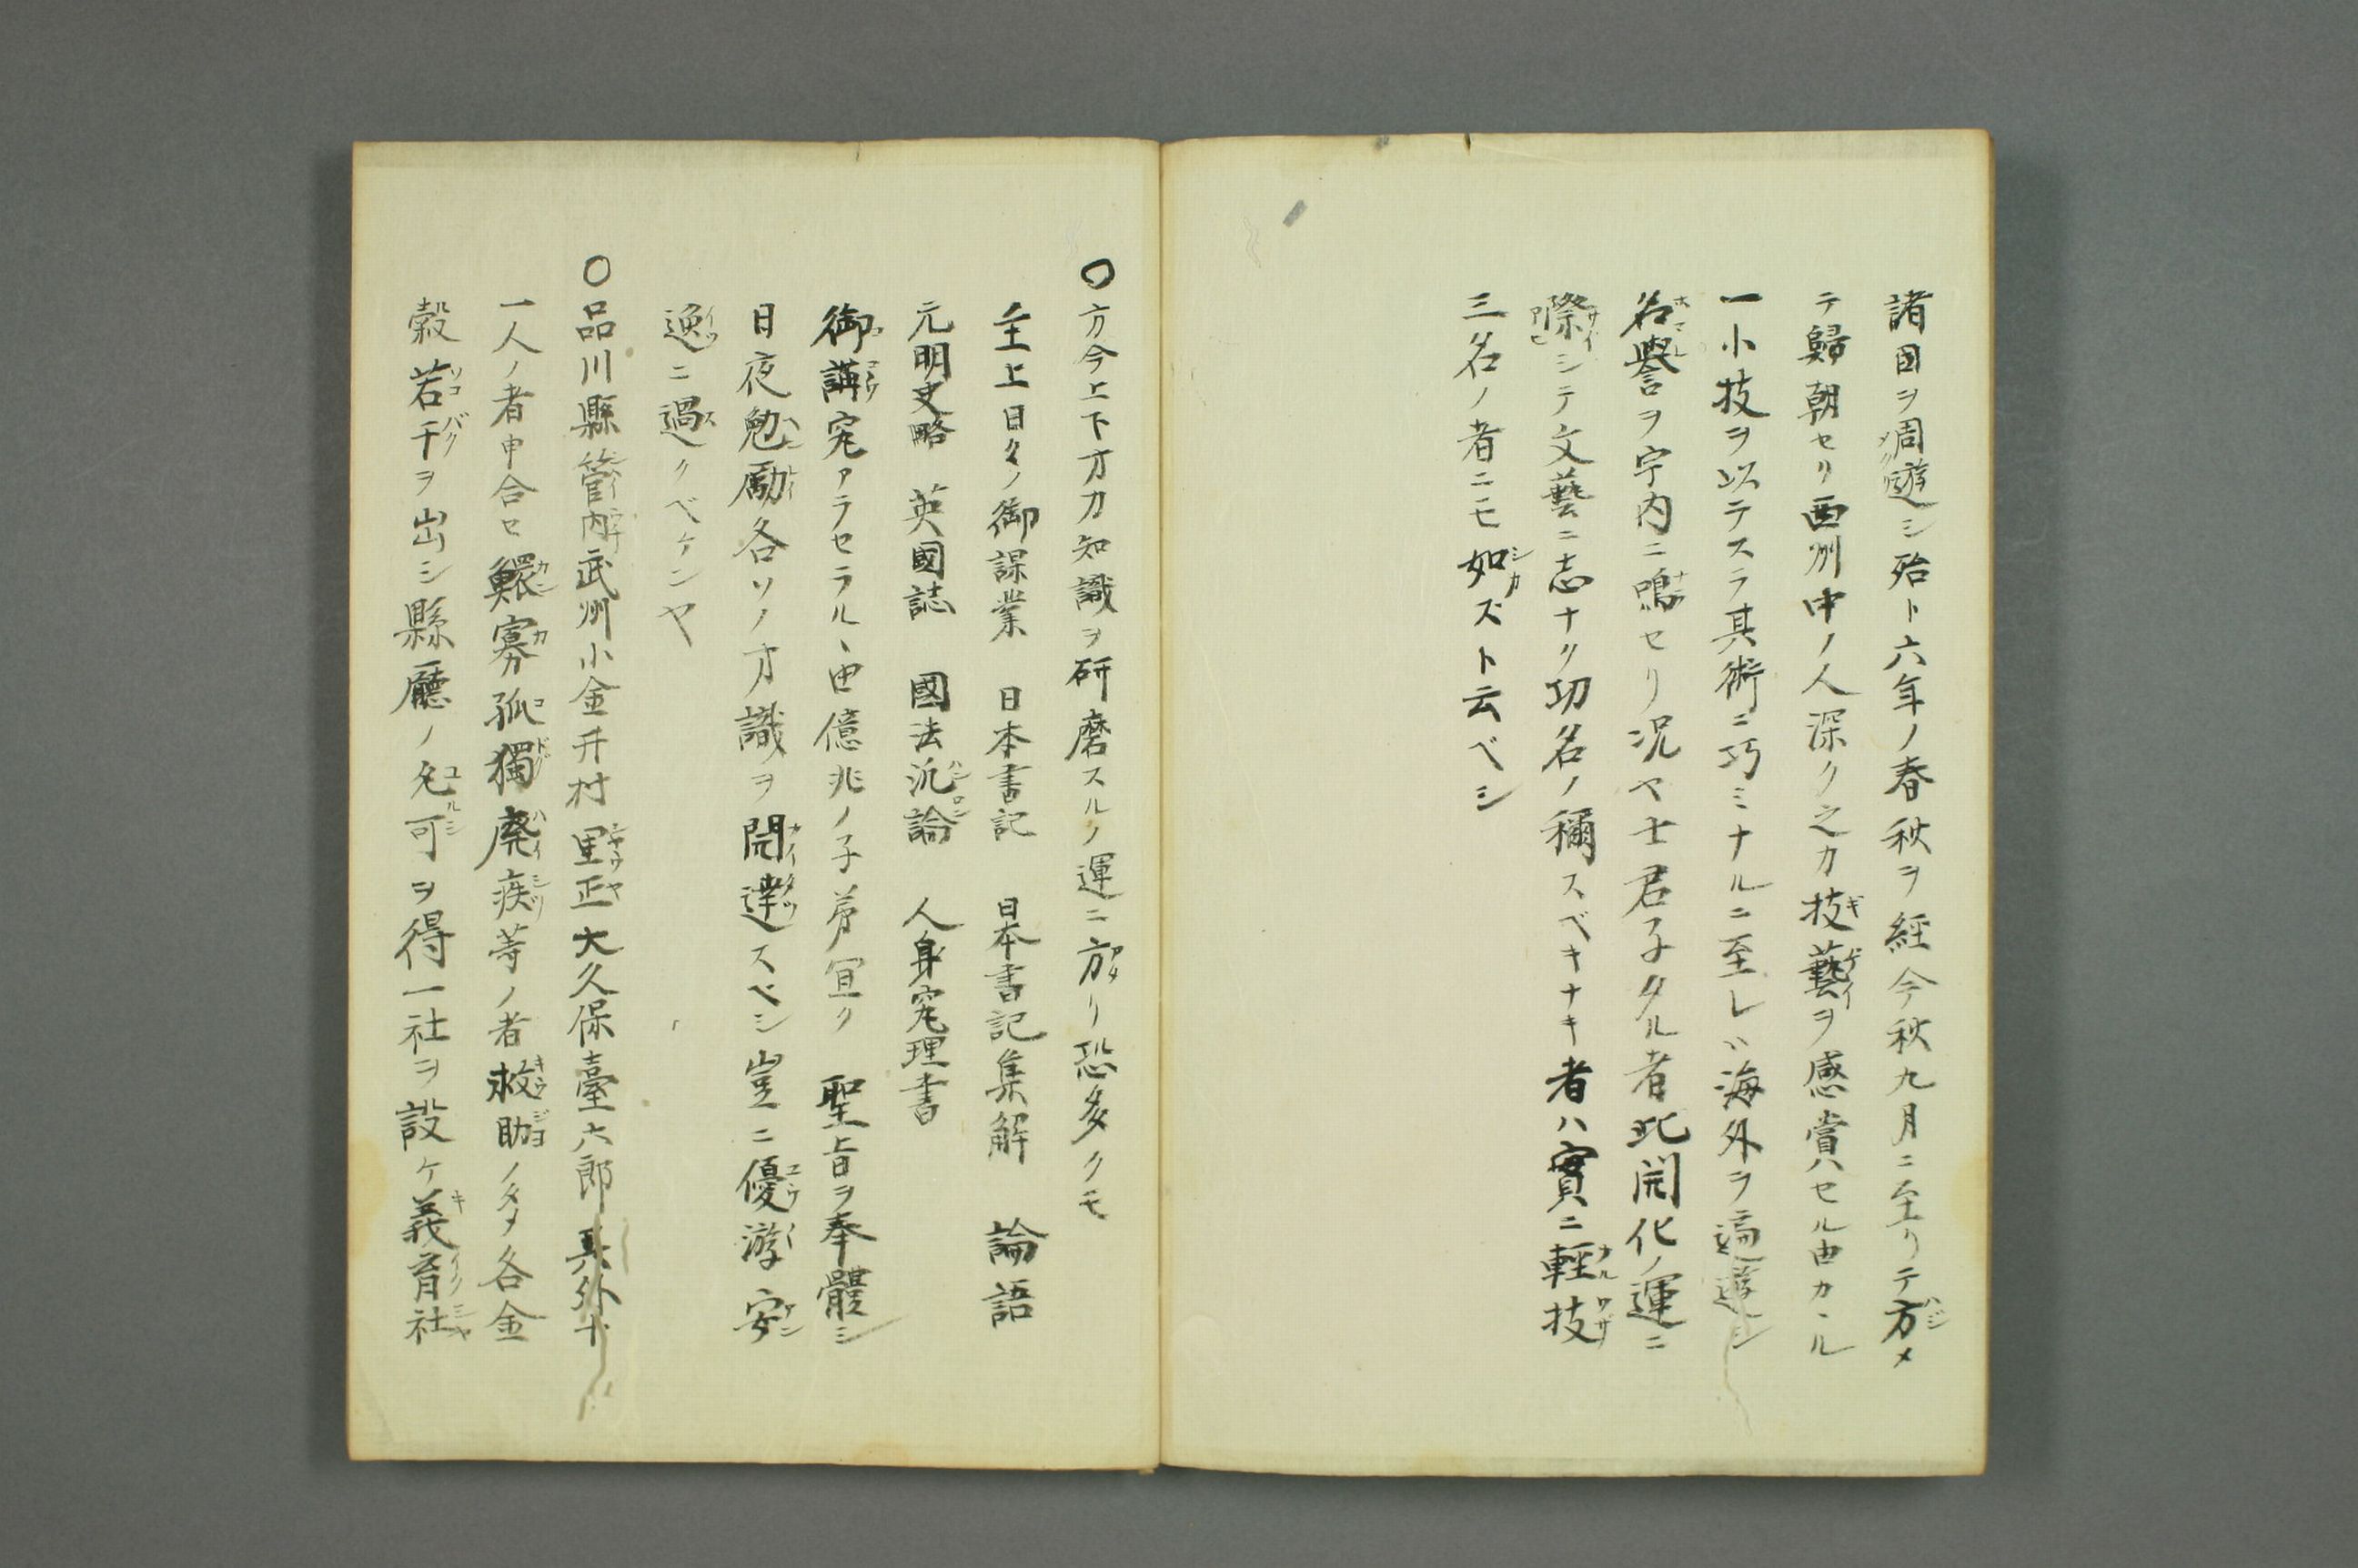 諸国ヲ周遊シ殆ト六年ノ春秋ヲ経今秋九月ニ至リテ方メ
テ歸朝セリ西洲中ノ人深ク之カ技藝ヲ感賞セル由カヽル
一小技ヲ以テスラ其術ニ巧ミナルニ至レバ海外ヲ遍遊シ
名譽ヲ宇内ニ鳴セリ況ヤ士君子タル者此開化ノ運ニ
際シテ文藝ニ志ナク功名ノ稱スベキナキ者ハ實ニ輕技
三名ノ者ニモ如ズト云ベシ
〇方今上下才力知識ヲ研磨スルノ運ニ方リ恐多クモ
主上日々ノ御課業 日本書記 日本書記集解 論語
元明史略 英國誌 國法汎論 人身究理書
御講究アラセラルヽ由億兆ノ子弟宜ク 聖旨ヲ奉體シ
日夜勉勵各ソノ才識ヲ開達スベシ豈ニ優游安
逸ニ過クベケンヤ
〇品川縣管内武州小金井村里正大久保臺六郎其外十
一人ノ者申合セ鰥寡孤獨廃疾等ノ者救助ノタメ各金
穀若干ヲ出シ縣廳ノ免可ヲ得一社ヲ設ケ義育社